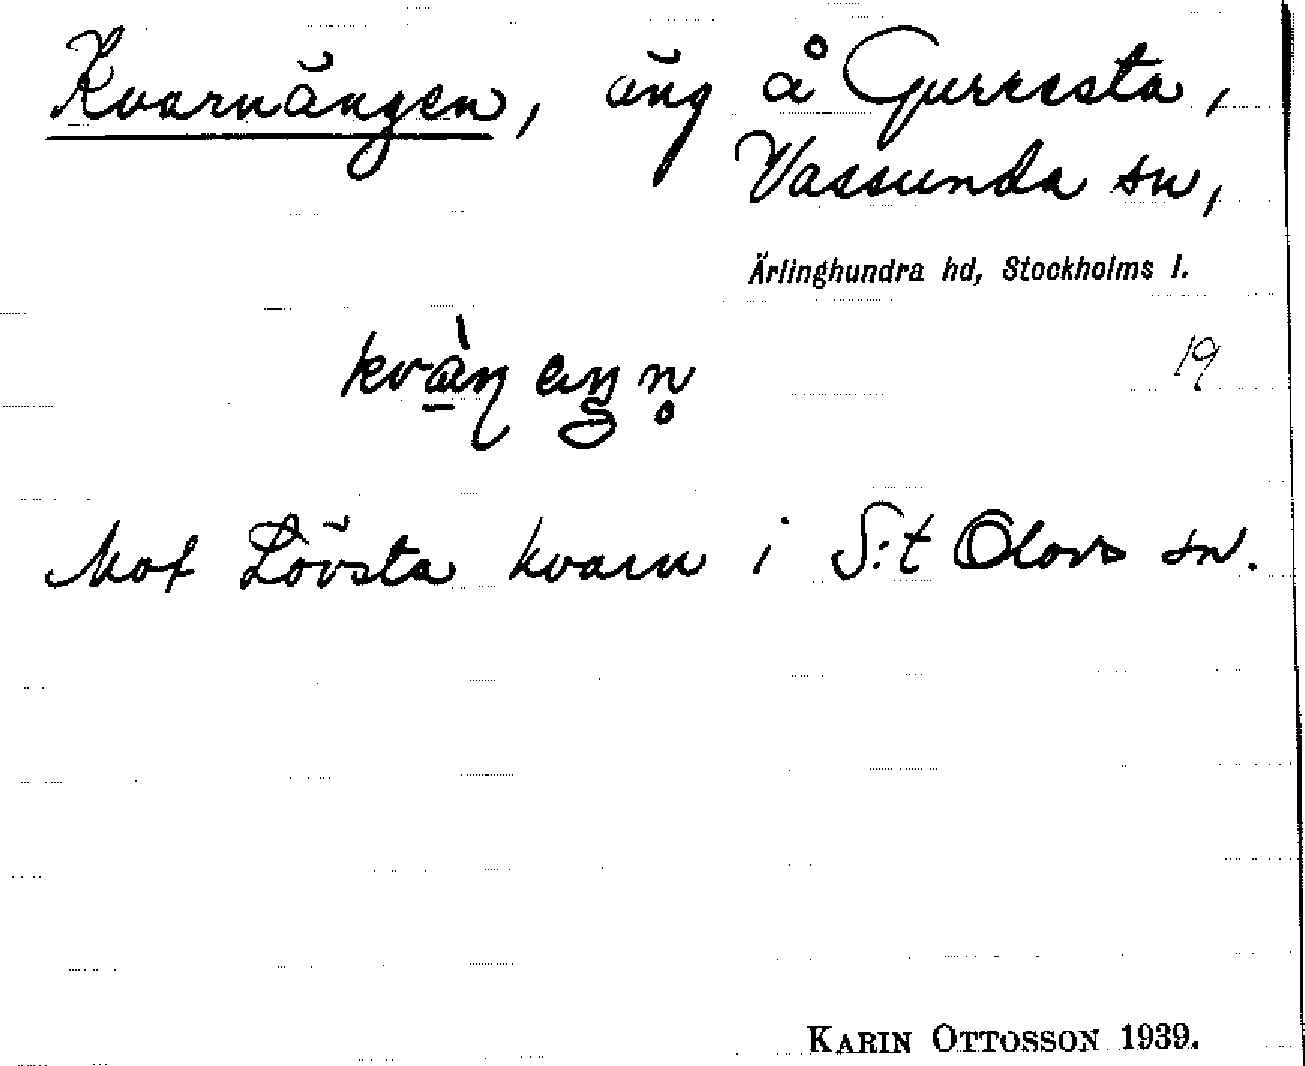 Kvarnängen, äng å Gurresta,
Vassunda sn,
Ärlinghundra hd, Stockholms l.
19
Mot Lövsta kvarn i S:t Olovs sn.
KARIN OTTOSSON 1939.